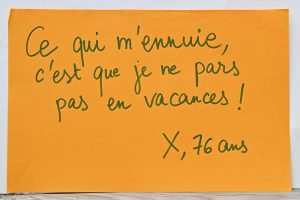 Ce qui m'ennuie,
c'est que je ne pars
pas en vacances !
X, 76 ans